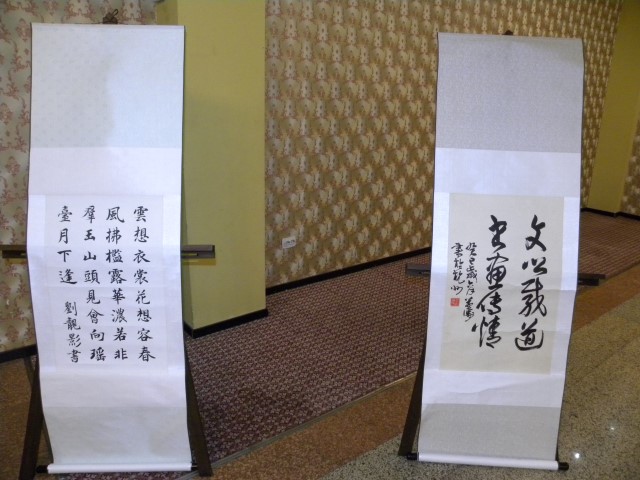 雲想衣裳花想容春
風拂檻露華濃若非
羣玉山頭見會向瑶
臺月下逢
劉龍影書
文以載道
書畫傳情
癸巳歲